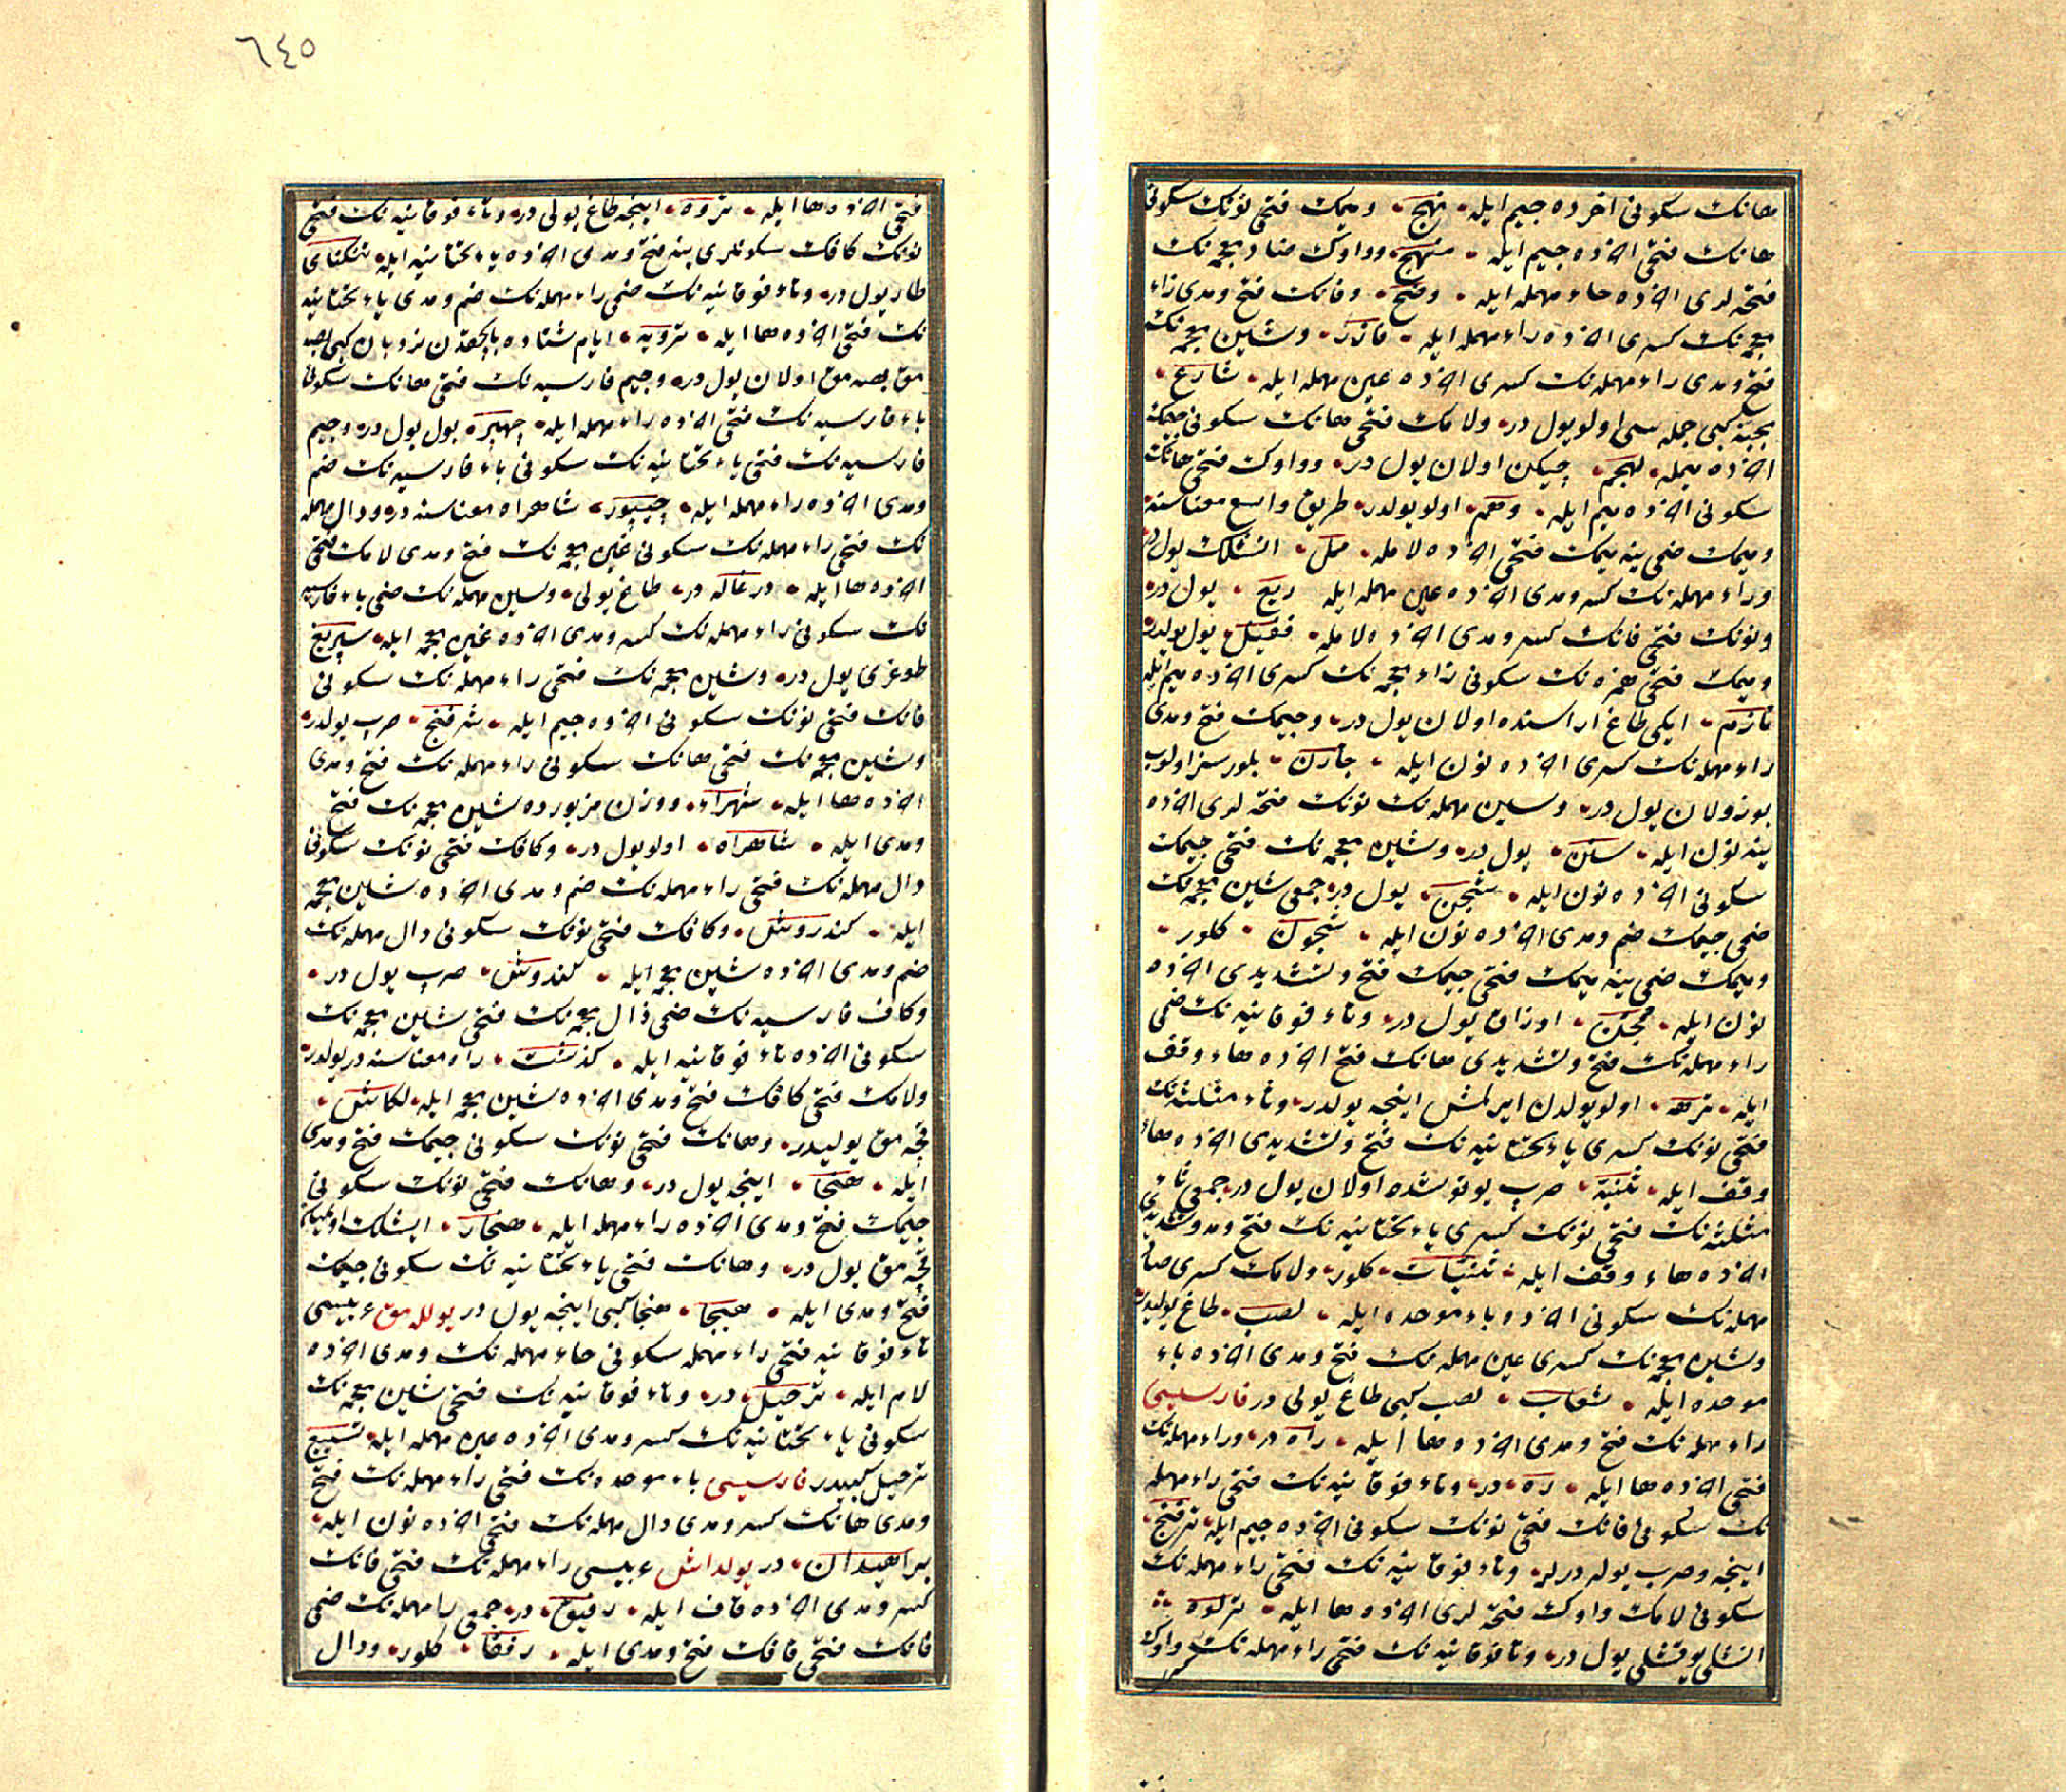 هانك سكونی اخرده جیم ایله نهج ومیمك فتحی نونك سكونی
هانك فتحی اخرده جیم ایله منهج وواوك ضاد معجمه نك
فتحه لری اخرده حاء مهمله ایله وضح وفانك فتح ومدی زاء
معجمه نك كسری اخرده راء مهمله ایله فازر وشین معجمه نك
فتح ومدی راء مهمله نك كسری اخرده عین مهمله ایله شارع
كبی جمله سی اولو یول در ولامك فتحی هانك سكونی
اخرده میمله لهجم اولان یول در وواوك فتحی هانك
سكونی اخرده میم ایله وهم اولو یولدر طریق واسع معناسنه
ومیمك ضمی ینه میمك فتحی اخرده لامله ممل یول در
وراء مهمله نك كسر ومدی اخرده عین مهمله ایله ریع یول در
ونونك فتحی قانك كسر ومدی اخرده لامله نقیل یول یولدر
ومیمك فتحی همزه نك سكونی زاء معجمه نك كسری اخرده میم ایله
مأزم ایكی طاغ اراسنده اولان یول در وجیمك فتح ومدی
راء مهمله نك كسری اخرده نون ایله جارن بلورسز اولوب
بوزولان یول در وسین مهمله نك نونك فتحه لری اخرده
ینه نون ایله سنن یول در وشین معجمه نك فتحی جیمك
سكونی اخرده نون ایله شجن یول در جمعی شین معجمه نك
ضمی جیمك ضم ومدی اخرده نون ایله شجون كلور
ومیمك ضمی ینه میمك فتحی جیمك فتح وتشدیدی اخرده
نون ایله ممجن اوزاق یول در وتاء فوقانیه نك ضمی
راء مهمله نك فتح وتشدیدی هانك فتح اخرده هاء وقف
ایله ترهه اولو یولدن ایرلمش اینجه یولدر وثاء مثلثه نك
فتحی نونك كسری یاء تحتانیه نك فتح وتشدیدی اخرده هاء
وقف ایله ثنیة صرپ یوقوشده اولان یول در جمعی ثاء
مثلثه نك فتحی نونك كسری یاء تحتانیه نك فتح ومد وتشدیدی
اخرده هاء وقف ایله ثنیات كلور ولامك كسری صاد
مهمله نك سكونی اخرده باء موحده ایله لصب طاغ یولیدر
وشین معجمه نك كسری عین مهمله نك فتح ومدی اخرده باء
موحده ایله شعاب لصب كبی طاغ یولی در فارسیسی
راء مهمله نك فتح ومدی اخرده ها ایله راه در وراء مهمله نك
فتحی اخرده ها ایله ره در وتاء فوقانیه نك فتحی راء مهمله
نك سكونی فانك فتحی نونك سكونی اخرده جیم ایله ترفنج
اینجه وصرپ یوله درلر وتاء فوقانیه نك فتحی راء مهمله نك
سكونی لامك واوك فتحه لری اخرده ها ایله ترلوه
انشلی یوقشلی یول در وتا فوقانیه نك فتحی راء مهمله نك واوك
٦٤٥
فتحی اخرده ها ایله تروه اینجه طاغ یولی در وتاء فوقانیه نك فتحی
نونك كافك سكونلری ینه فتح ومدی اخرده یاء تحتانیه ایله تنكنای
طار یول در وتاء فوقانیه نك ضمی راء مهمله نك ضم ومدی یاء تحتانیه
نك فتحی اخرده ها ایله ترویه ایام شتاده بالچقدن نردبان كبی بصه
مق بصه مق اولان یول در وجیم فارسیه نك فتحی هانك سكونی
باء فارسیه نك فتحی اخرده راء مهمله ایله چهپر بول یول در وجیم
فارسیه نك فتحی یاء تحتانیه نك سكونی باء فارسیه نك ضم
ومدی اخرده راء مهمله ایله چیپور شاهراه معناسنه در ودال مهمله
نك فتحی راء مهمله نك سكونی غین معجمه نك فتح ومدی لامك فتحی
اخرده ها ایله درغاله در طاغ یولی وسین مهمله نك ضمی باء فارسیه
نك سكونی راء مهمله نك كسر ومدی اخرده غین معجمه ایله سپریغ
طوغری یول در وشین معجمه نك فتحی راء مهمله نك سكونی
فانك فتحی نونك سكونی اخرده جیم ایله شرفنج صرپ یولدر
وشین معجمه نك فتحی هانك سكونی راء مهمله نك فتح ومدی
اخرده ها ایله شهراه ووزن مزبورده شین معجمه نك فتح
ومدی ایله شاهراه اولو یول در وكافك فتحی نونك سكونی
دال مهمله نك فتحی راء مهمله نك ضم ومدی اخرده شین معجمه
ایله كندروش وكافك فتحی نونك سكونی دال مهمله نك
ضم ومدی اخرده شین معجمه ایله كندوش صرپ یول در
وكاف فارسیه نك ضمی ذال معجمه نك فتحی شین معجمه نك
سكونی اخرده تاء فوقانیه ایله كذشت راه معناسنه در یولدر
ولامك فتحی كافك فتح ومدی اخرده شین معجمه ایله لكاش
قچه مق یولیدر وهانك فتحی نونك سكونی جیمك فتح ومدی
ایله هنجا اینجه یول در وهانك فتحی نونك سكونی
جیمك فتح ومدی اخرده راء مهمله ایله هنجار ایشلك اولمیان
قچه مق یول در وهانك فتحی یاء تحتانیه نك سكونی جیمك
فتح ومدی ایله هیجا هنجا كبی اینجه یول در یوللامق عربیسی
تاء فوقانیه فتحی راء مهمله سكونی حاء مهمله نك ومدی اخرده
لام ایله ترحیل در وتاء فوقانیه نك فتحی شین معجمه نك
سكونی یاء تحتانیه نك كسر ومدی اخرده عین مهمله ایله تشییع
ترحیل كبیدر فارسیسی باء موحده نك فتحی راء مهمله نك فتح
ومدی هانك كسر ومدی دال مهمله نك فتحی اخرده نون ایله
براهیدان در یولداش عربیسی راء مهمله نك فتحی فانك
كسر ومدی اخرده قاف ایله رفیق در جمعی را مهمله نك ضمی
فانك فتحی قافك فتح ومدی ایله رفقا كلور ودال